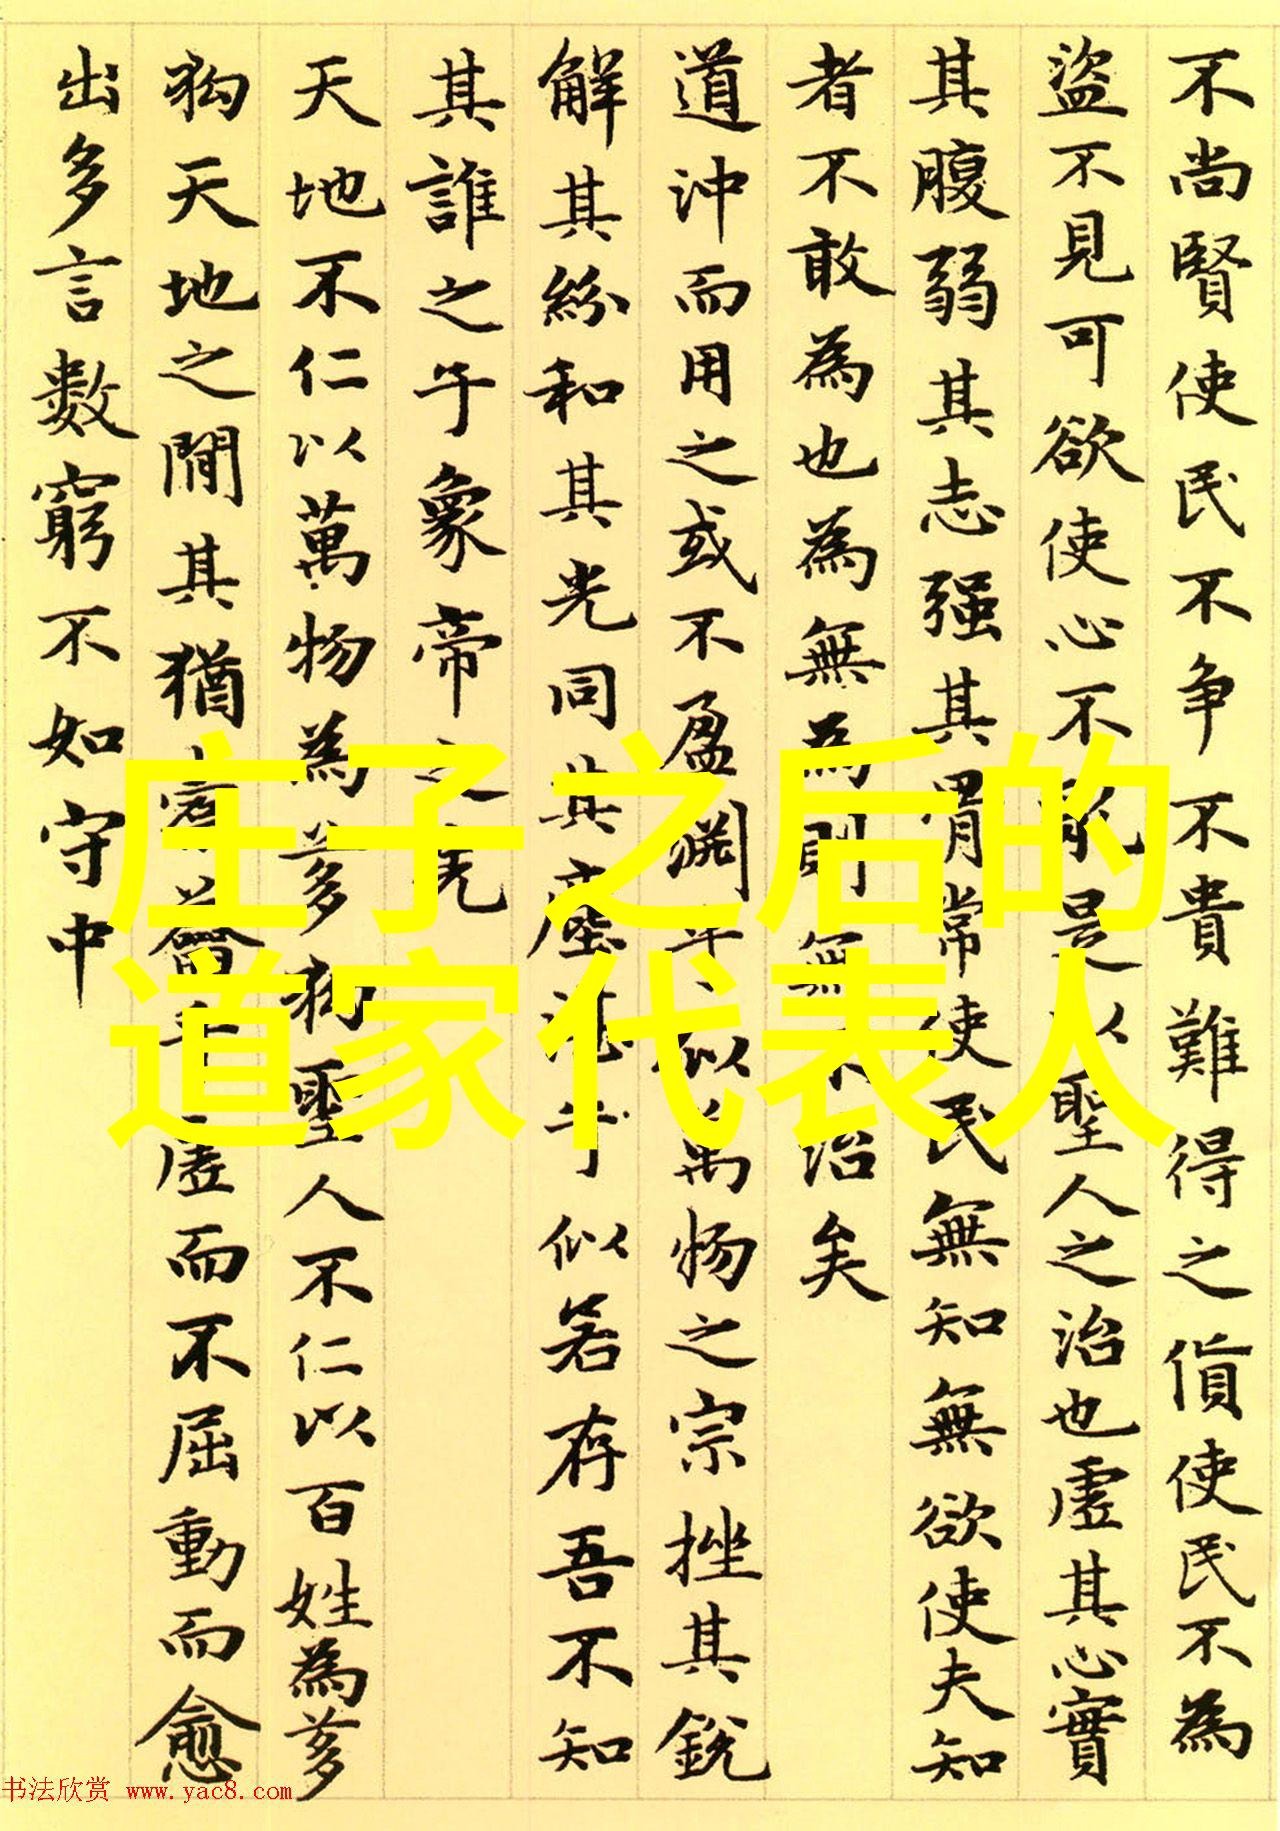 不尚賢使民不争不貴難得之貨使民不為
盜不見可欲使心不亂是以聖人之治也虛其心實
其腹弱其志强其骨常使民無知無欲使夫知
者不敢為也為無為則無不治矣
道沖而用之或不盈淵乎似萬物之宗挫其銳
解其紛和其光同其塵湛乎似若存吾不知
其誰之子象帝之先
天地不仁以萬物為芻狗聖人不仁以百姓為芻
狗天地之閒其猶橐籥乎虛而不屈動而愈
出多言數窮不如守中
庄子之后的
道家代表人
书法欣赏 www.yac8.com